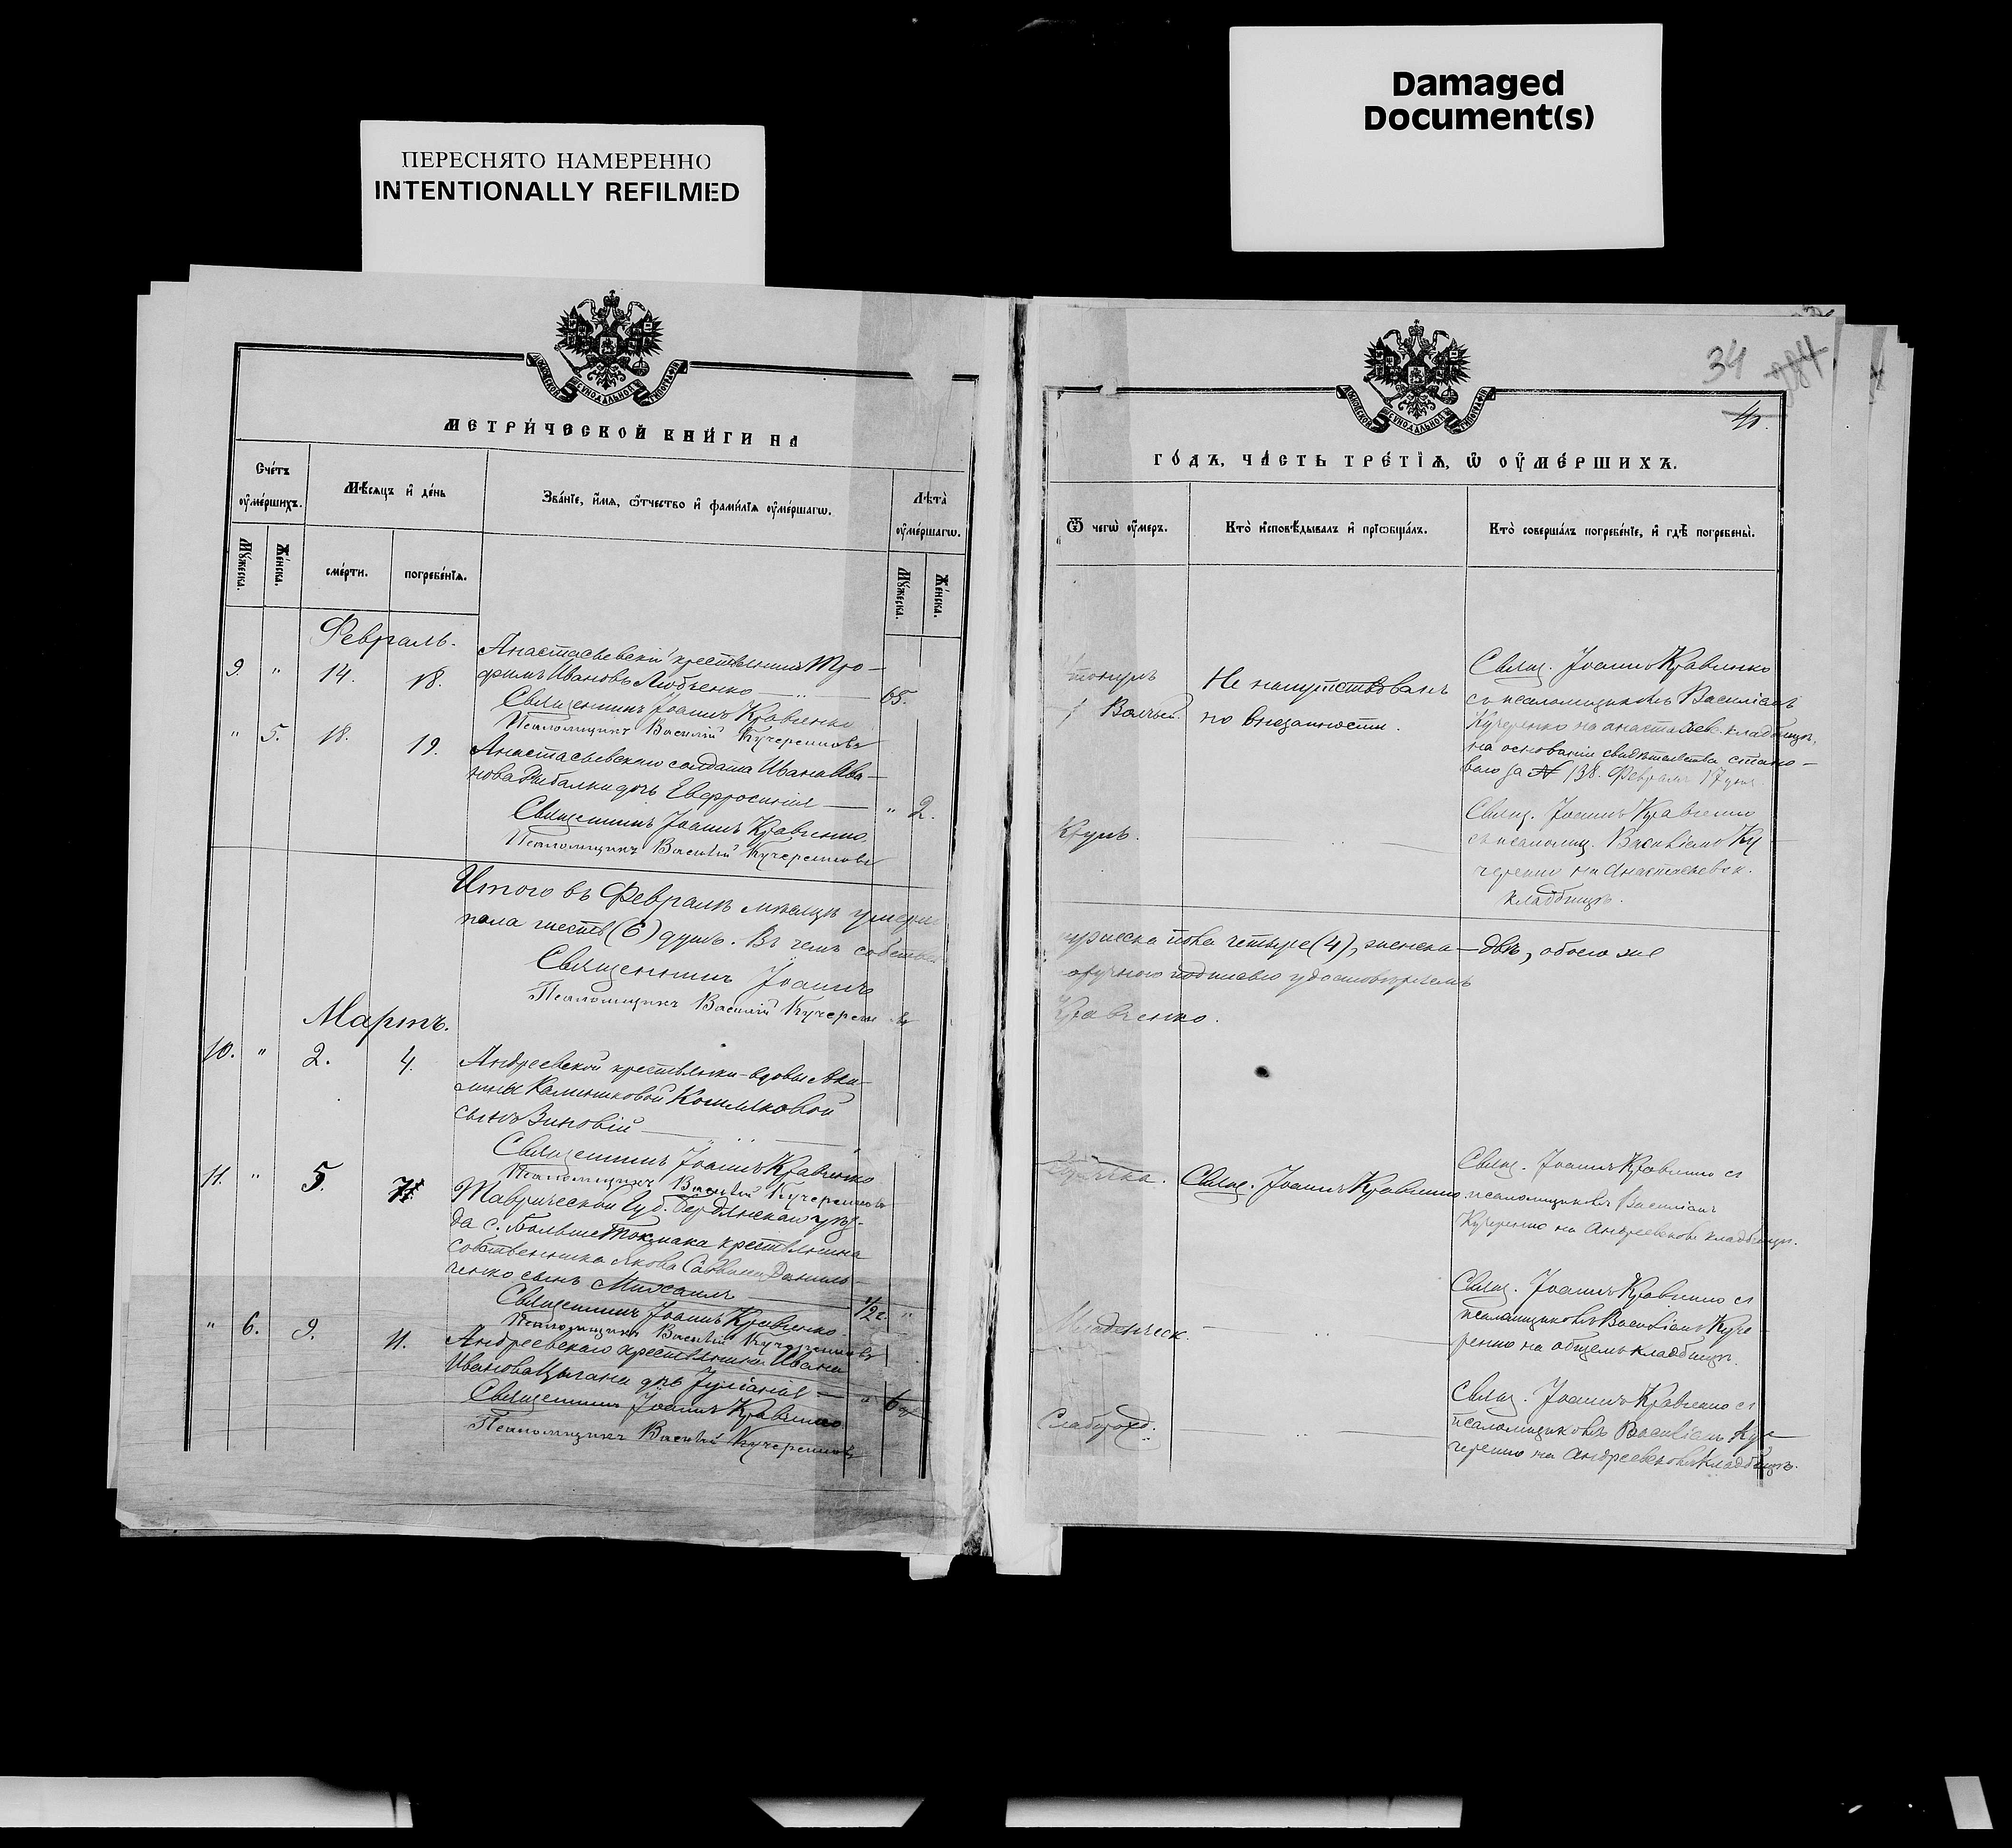 Damaged
Document(s)
ПЕРЕСНЯТО НАМЕРЕННО
INTENTIONALLY REFILMED
МЕТРИ́ЧЕСКОЙ КНИ́ГИ НА
Сче́тъ
оу҆ме́ршихъ.
Мѣ́сяцъ и҆ де́нь
Зва́нїе, и҆́мѧ, ѻ҆́тчество и҆ фами́лїѧ оу҆ме́ршагѡ.
Лѣта̀
оу҆ме́ршагѡ.
Мꙋ́жеска.
Же́нска.
сме́рти.
погребе́нїѧ.
Мꙋ́жеска.
Же́нска.
Февраль.
9. " 14. 18.
Анастасьевскій крестьянинъ Тро-
фимъ Ивановъ Любченко — 65.
Священникъ Іоаннъ Кравченко
Псаломщикъ Василій Кучеренковъ
" 5. 18. 19.
Анастасьевскаго солдата Ивана Ива-
нова Рыбалки дочь Евфросинія — " 2.
Священникъ Іоаннъ Кравченко
Псаломщикъ Василій Кучеренковъ
Итого въ Февралѣ мѣсяцѣ умерло
пола шесть (6) душъ. Въ чемъ собствен
Священникъ Іоаннъ
Псаломщикъ Василій Кучеренковъ
Мартъ.
10. " 2. 4.
Андреевской крестьянки-вдовы Аки-
лины Калишковой
сынъ Зиновій
Священникъ Іоаннъ Кравченко
Псаломщикъ Василій Кучеренковъ
11. " 5.
Таврической Губ. Бердянскаго уѣз-
да с. Больше Токмака крестьянина
собственника Якова Саввина Даниль-
ченко сынъ Михаилъ — 1/2 г. "
Священникъ Іоаннъ Кравченко
Псаломщикъ Василій Кучеренковъ
" 6. 9. 11.
Андреевскаго крестьянина Ивана
Иванова Цыгана дочь Іуліанія — " 6
Священникъ Іоаннъ Кравченко
Псаломщикъ Василій Кучеренковъ
34
284
ГО́ДЪ, ЧА́СТЬ ТРЕ́ТЇѦ, Ѡ҆ ОУ҆МЕ́РШИХЪ.
Ѿ чегѡ̀ оу҆́меръ.
Кто̀ и҆сповѣ́дывалъ и҆ прїѡбща́лъ.
Кто̀ соверша́лъ погребе́нїе, и҆ гдѣ̀ погребены̀.
тонулъ
Волчьей.
Не напутствованъ
по внезапности.
Свящ. Іоаннъ Кравченко
съ псаломщикомъ Василіемъ
Кучеренко на анастасьев. кладбищѣ,
на основаніи свидѣтельства стано-
ваго за № 138. Февраля 17 дня
Крупъ.
Свящ. Іоаннъ Кравченко
съ псаломщ. Василіемъ Ку-
черенко на Анастасьевск.
кладбищѣ.
мужеска пола четыре (4), женска — двѣ, обоего же
оручною подписью удостовѣряемъ
Кравченко.
Свящ. Іоаннъ Кравченко
Свящ. Іоаннъ Кравченко съ
псаломщикомъ Василіемъ
Кучеренко на Андреевскомъ кладбищѣ.
Младенческ.
Свящ. Іоаннъ Кравченко съ
псаломщикомъ Василіемъ Куче-
ренко на общемъ кладбищѣ.
Слаборожд.
Свящ. Іоаннъ Кравченко съ
псаломщикомъ Василіемъ Ку-
черенко на Андреевскомъ кладбищѣ.